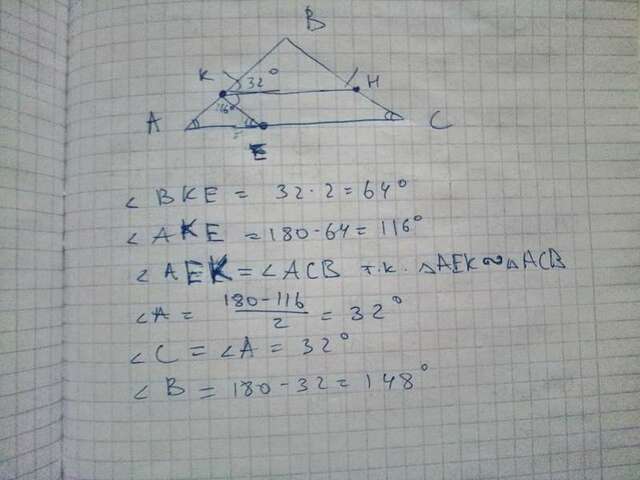 B
K 32°
H
116°
A
C
E
∠BKE = 32·2=64°
∠AKE =180-64=116°
∠AEK=∠ACB т.к. △AEK∾△ACB
∠A = 180-116 / 2 = 32°
∠C = ∠A = 32°
∠B = 180-32=148°